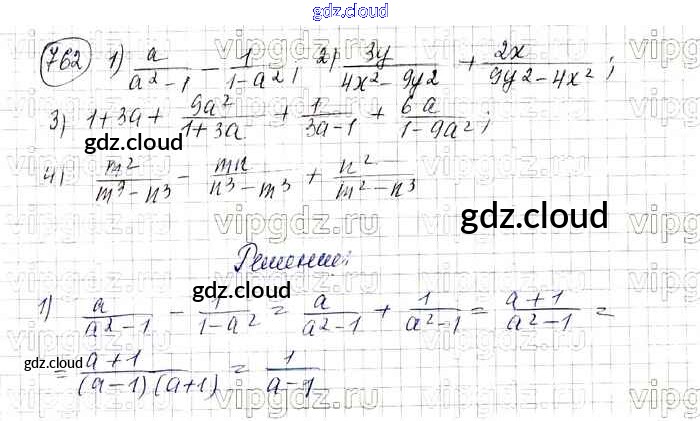 gdz.cloud
762 1) a/(a² - 1) - 1/(1 - a²); 2) 3y/(4x² - 9y2) + 2x/(9y2 - 4x²);
3) 1 + 3a + 9a²/(1 + 3a) + 1/(3a - 1) + 6a/(1 - 9a²);
gdz.cloud
4) m²/(m³ - n³) - mn/(n³ - m³) + n²/(m² - n³)
gdz.cloud
Решение:
1) a/(a² - 1) - 1/(1 - a²) = a/(a² - 1) + 1/(a² - 1) = (a + 1)/(a² - 1) =
gdz.cloud
= (a + 1)/((a - 1)(a + 1)) = 1/(a - 1)
gdz.cloud
vipgdz.com